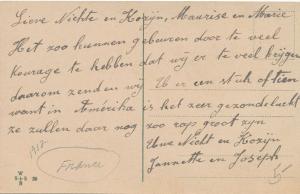 Lieve Nichte en Kozijn, Maurise en Marie
Het zoo kunnen gebeuren door te veel
Kourage te hebben dat wij er te veil krijgen
daarom zenden wij U er een stuk of tien
want in Amérika is het zeer gezond lucht
ze zullen daar nog zoo rap groot zijn
Uwe Nicht en Kozijn
Jannette en Joseph
France
5-